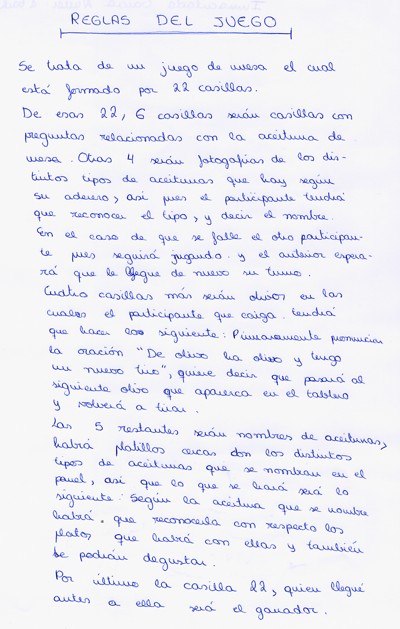 REGLAS DEL JUEGO
Se trata de un juego de mesa el cual
está formado por 22 casillas.
De esas 22, 6 casillas serán casillas con
preguntas relacionadas con la aceituna de
mesa. Otras 4 serán fotografías de los dis-
tintos tipos de aceitunas que hay según
su aderezo, así pues el participante tendrá
que reconocer el tipo, y decir el nombre.
En el caso de que se falle el otro participan-
te pues seguirá jugando. y el anterior espera-
rá que le llegue de nuevo su turno.
Cuatro casillas más serán olivos en las
cuales el participante que caiga. tendrá
que hacer lo siguiente: Primeramente pronunciar
la oración "De olivo ha olivo y tengo
un nuevo tiro", quiere decir que pasará al
siguiente olivo que aparezca en el tablero
y volverá a tirar.
Las 5 restantes serán nombres de aceitunas,
habrá platillos cerca con los distintos
tipos de aceitunas que se nombran en el
panel, así que lo que se hará será lo
siguiente: Según la aceituna que se nombre
habrá. que reconocerla con respecto los
platos, que habrá con ellas y también
se podrán degustar.
Por último la casilla 22, quien llegué
antes a ella será el ganador.